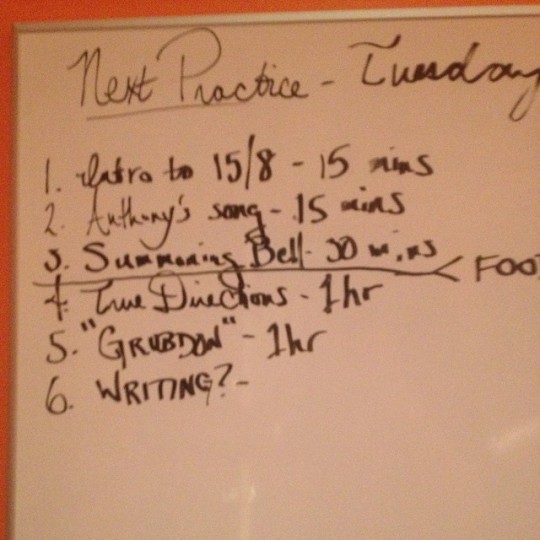 Next Practice - Tuesday
1. Intro to 15/8 - 15 mins
2. Anthony's song - 15 mins
3. Summoning Bell - 30 mins
FOO
4. True Directions - 1hr
5. "GRUBDOW" - 1hr
6. WRITING? -